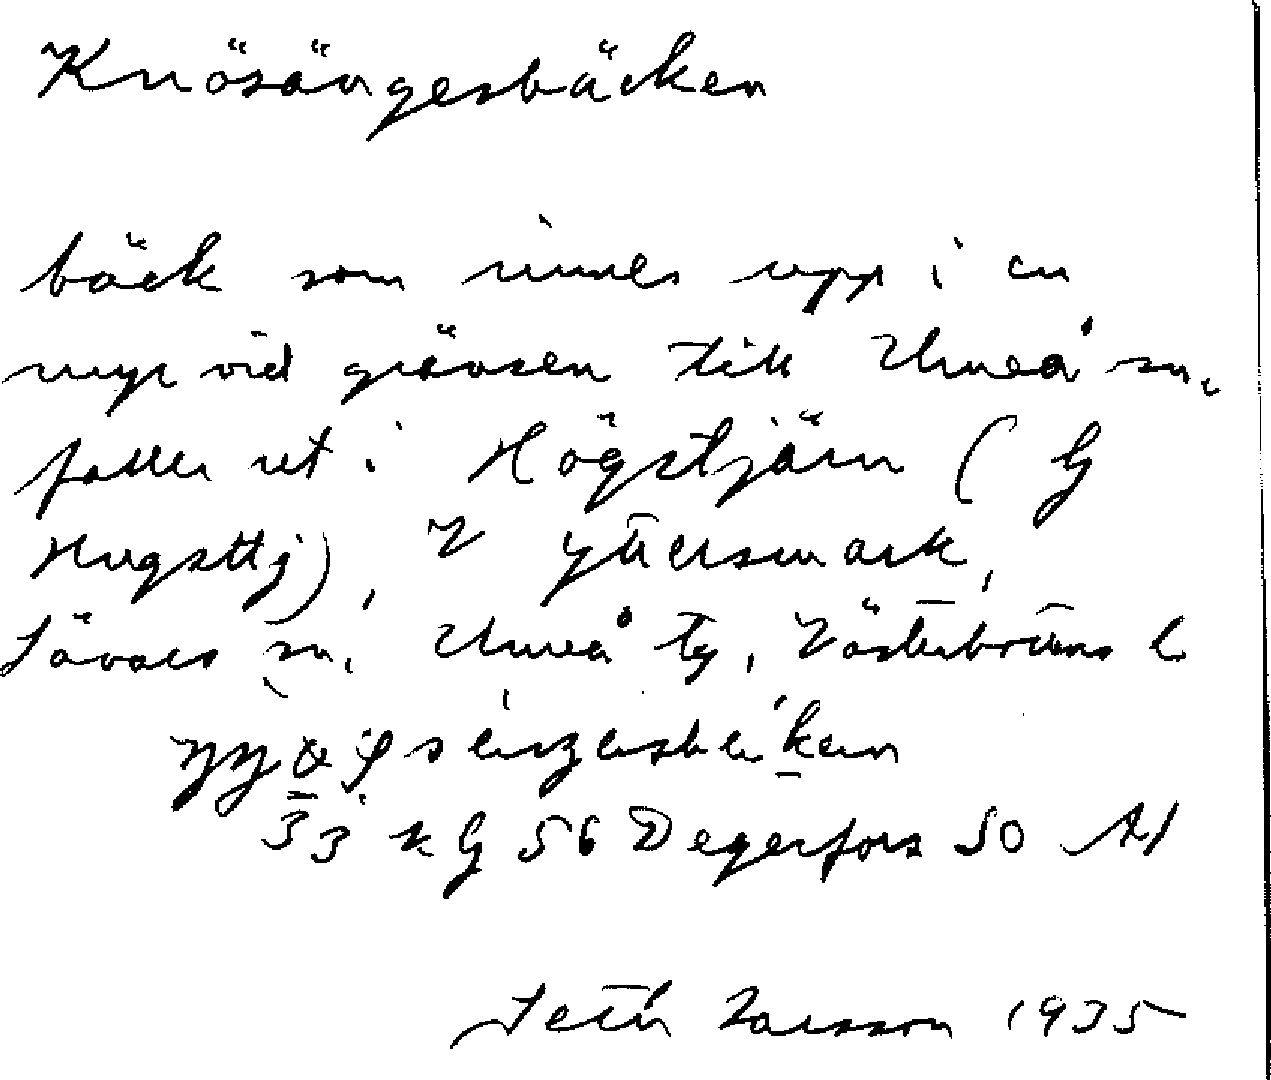 Knösängesbäcken
bäck som rinner upp i en
myr vid gränsen till Umeå sn,
faller ut i Högstjärn ( G
Hugsttj), V Yttersmark,
Sävars sn, Umeå tg, Västerbottens l
33 k G 56 Degerfors SO A1
Seth Larsson 1935